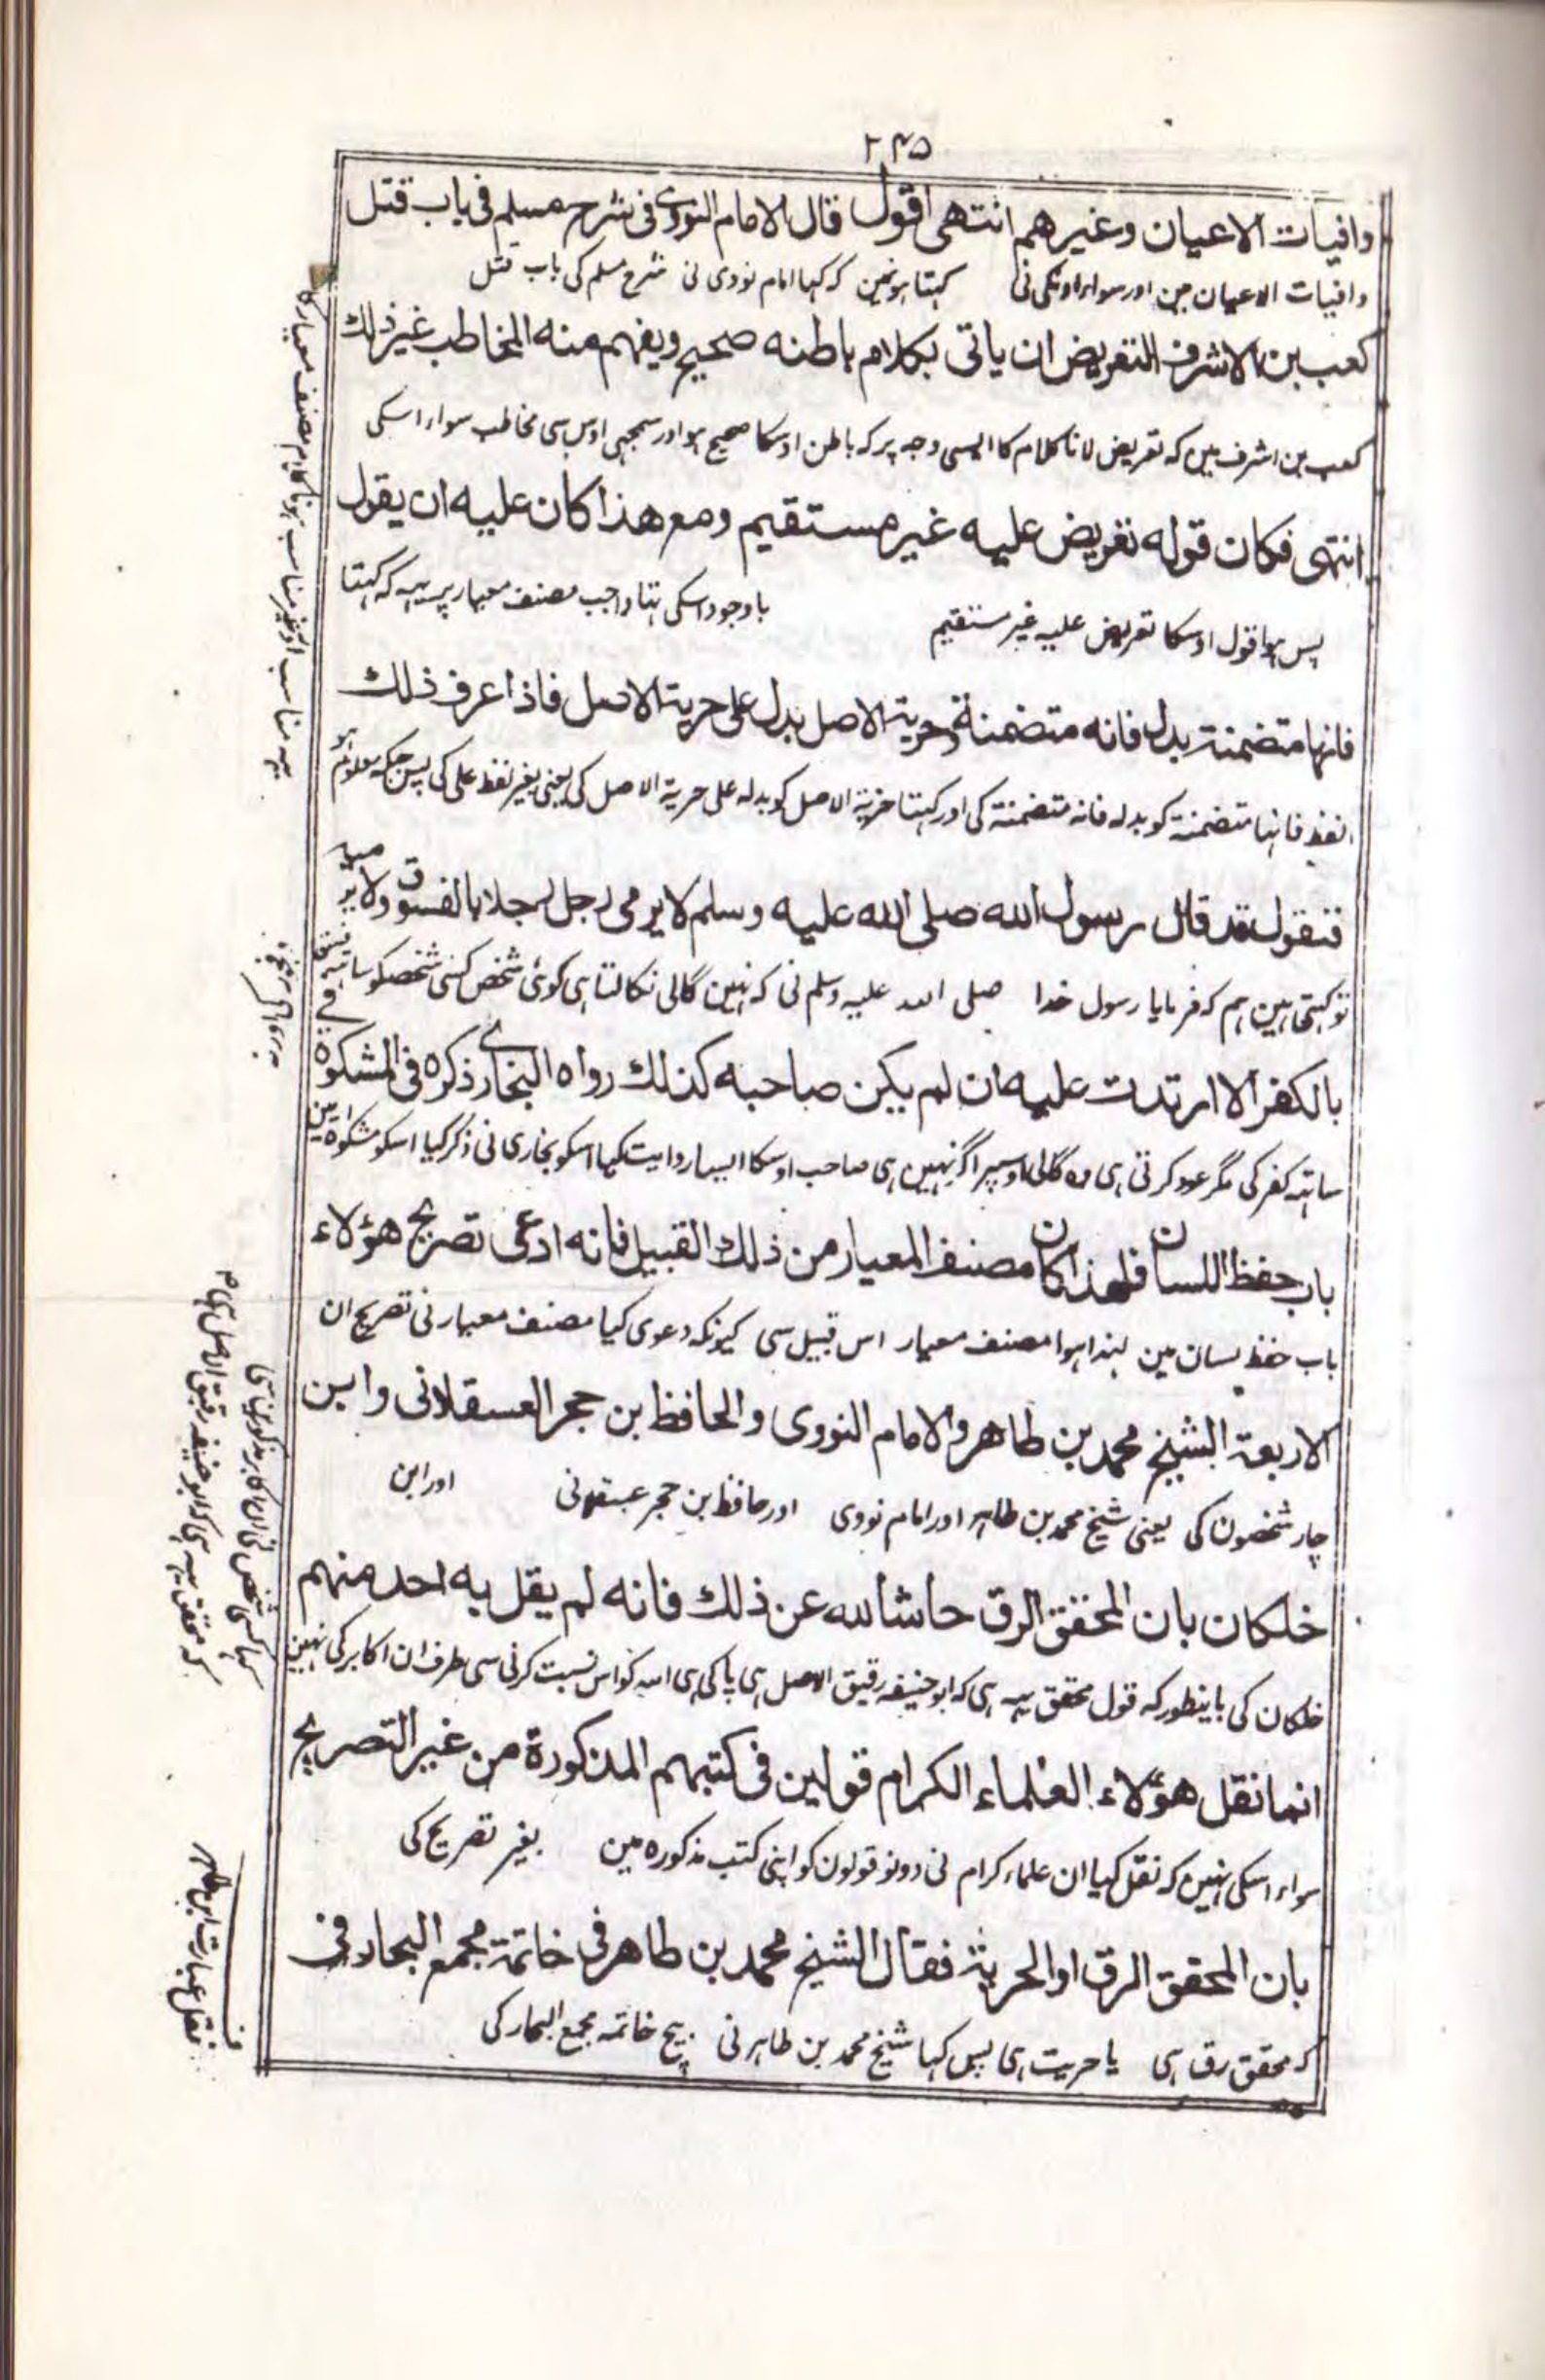 ٢٤٥
وافيات الاعيان وغيرهم انتهى اقول قال الامام النووى فى شرح مسلم فى باب قتل
وافیات الاعیان مین اور سواء اونکی نی کہتا ہونمین کہ کہا امام نووی نی شرح مسلم کی باب قتل
كعب بن الاشرف التعريض ان ياتى بكلام باطنه صحيح ويفهم منه المخاطب غير ذلك
کعب بن اشرف مین کہ تعریض لانا کلام کا ایسی وجہ پر کہ باطن اوسکا صحیح ہو اور سمجہی اوس سی مخاطب سواء اسکی
انتهى فكان قوله تعريض عليه غير مستقيم ومع هذا كان عليه ان يقول
پس ہوا قول اوسکا تعریض علیہ غیر مستقیم باوجود اسکی تہا واجب مصنف معیار پر یہہ کہ کہتا
فانها متضمنة بدل فانه متضمنة وحرية الاصل بدل على حرية الاصل فاذا عرف ذلك
لفظ فانہا متضمنة کو بدلہ فانہ متضمنة کی اور کہتا حریة الاصل کو بدلہ علی حریة الاصل کی یعنی بغیر لفظ علی کی پس جبکہ معلوم ہو
فنقول قد قال رسول الله صلى الله عليه وسلم لا يرمى رجل رجلا بالفسوق ولا يرميه
تو کہتی ہین ہم کہ فرمایا رسول خدا صلی اللہ علیہ وسلم نی کہ نہین گالی نکالتا ہی کوئی شخص کسی شخصکو ساتہہ فسق
بالكفر الا ارتدت عليه ان لم يكن صاحبه كذلك رواه البخارى ذكره فى المشكوة فى
ساتہہ کفر کی مگر عود کرتی ہی وہ گالی اوسپر اگر نہین ہی صاحب اوسکا ایسا روایت کیا اسکو بخاری نی ذکر کیا اسکو مشکوة مین
باب حفظ اللسان فلهذا كان مصنف المعيار من ذلك القبيل فانه ادعى تصريح هؤلاء
باب حفظ لسان مین لہذا ہوا مصنف معیار اس قبیل سی کیونکہ دعوی کیا مصنف معیار نی تصریح ان
الاربعة الشيخ محمد بن طاهر والامام النووى والحافظ بن حجر العسقلانى وابن
چار شخصون کی یعنی شیخ محمد بن طاہر اور امام نووی اور حافظ بن حجر عسقلانی اور ابن
خلكان بان المحقق الرق حاشا لله عن ذلك فانه لم يقل به احد منهم
خلکان کی باینطور کہ قول محقق یہہ ہی کہ ابوحنیفہ رقیق الاصل ہی پاکی ہی اللہ کو اس نسبت کرنی سی طرف ان اکابر کی نہین
انما نقل هؤلاء العلماء الكرام قولين فى كتبهم المذكورة من غير التصريح
سواء اسکی نہین کہ نقل کیا ان علماء کرام نی دونو قولون کو اپنی کتب مذکورہ مین بغیر تصریح کی
بان المحقق الرق او الحرية فقال الشيخ محمد بن طاهر فى خاتمة مجمع البحار فى
کہ محقق رق ہی یا حریت ہی پس کہا شیخ محمد بن طاہر نی بیچ خاتمہ مجمع البحار کی
کہا کسی شخص نی ان اکابر مذکورین سی
کہ محقق یہہ ہی کہ ابوحنیفہ رقیق الاصل ہی
نقل عبارت ابن طاہر